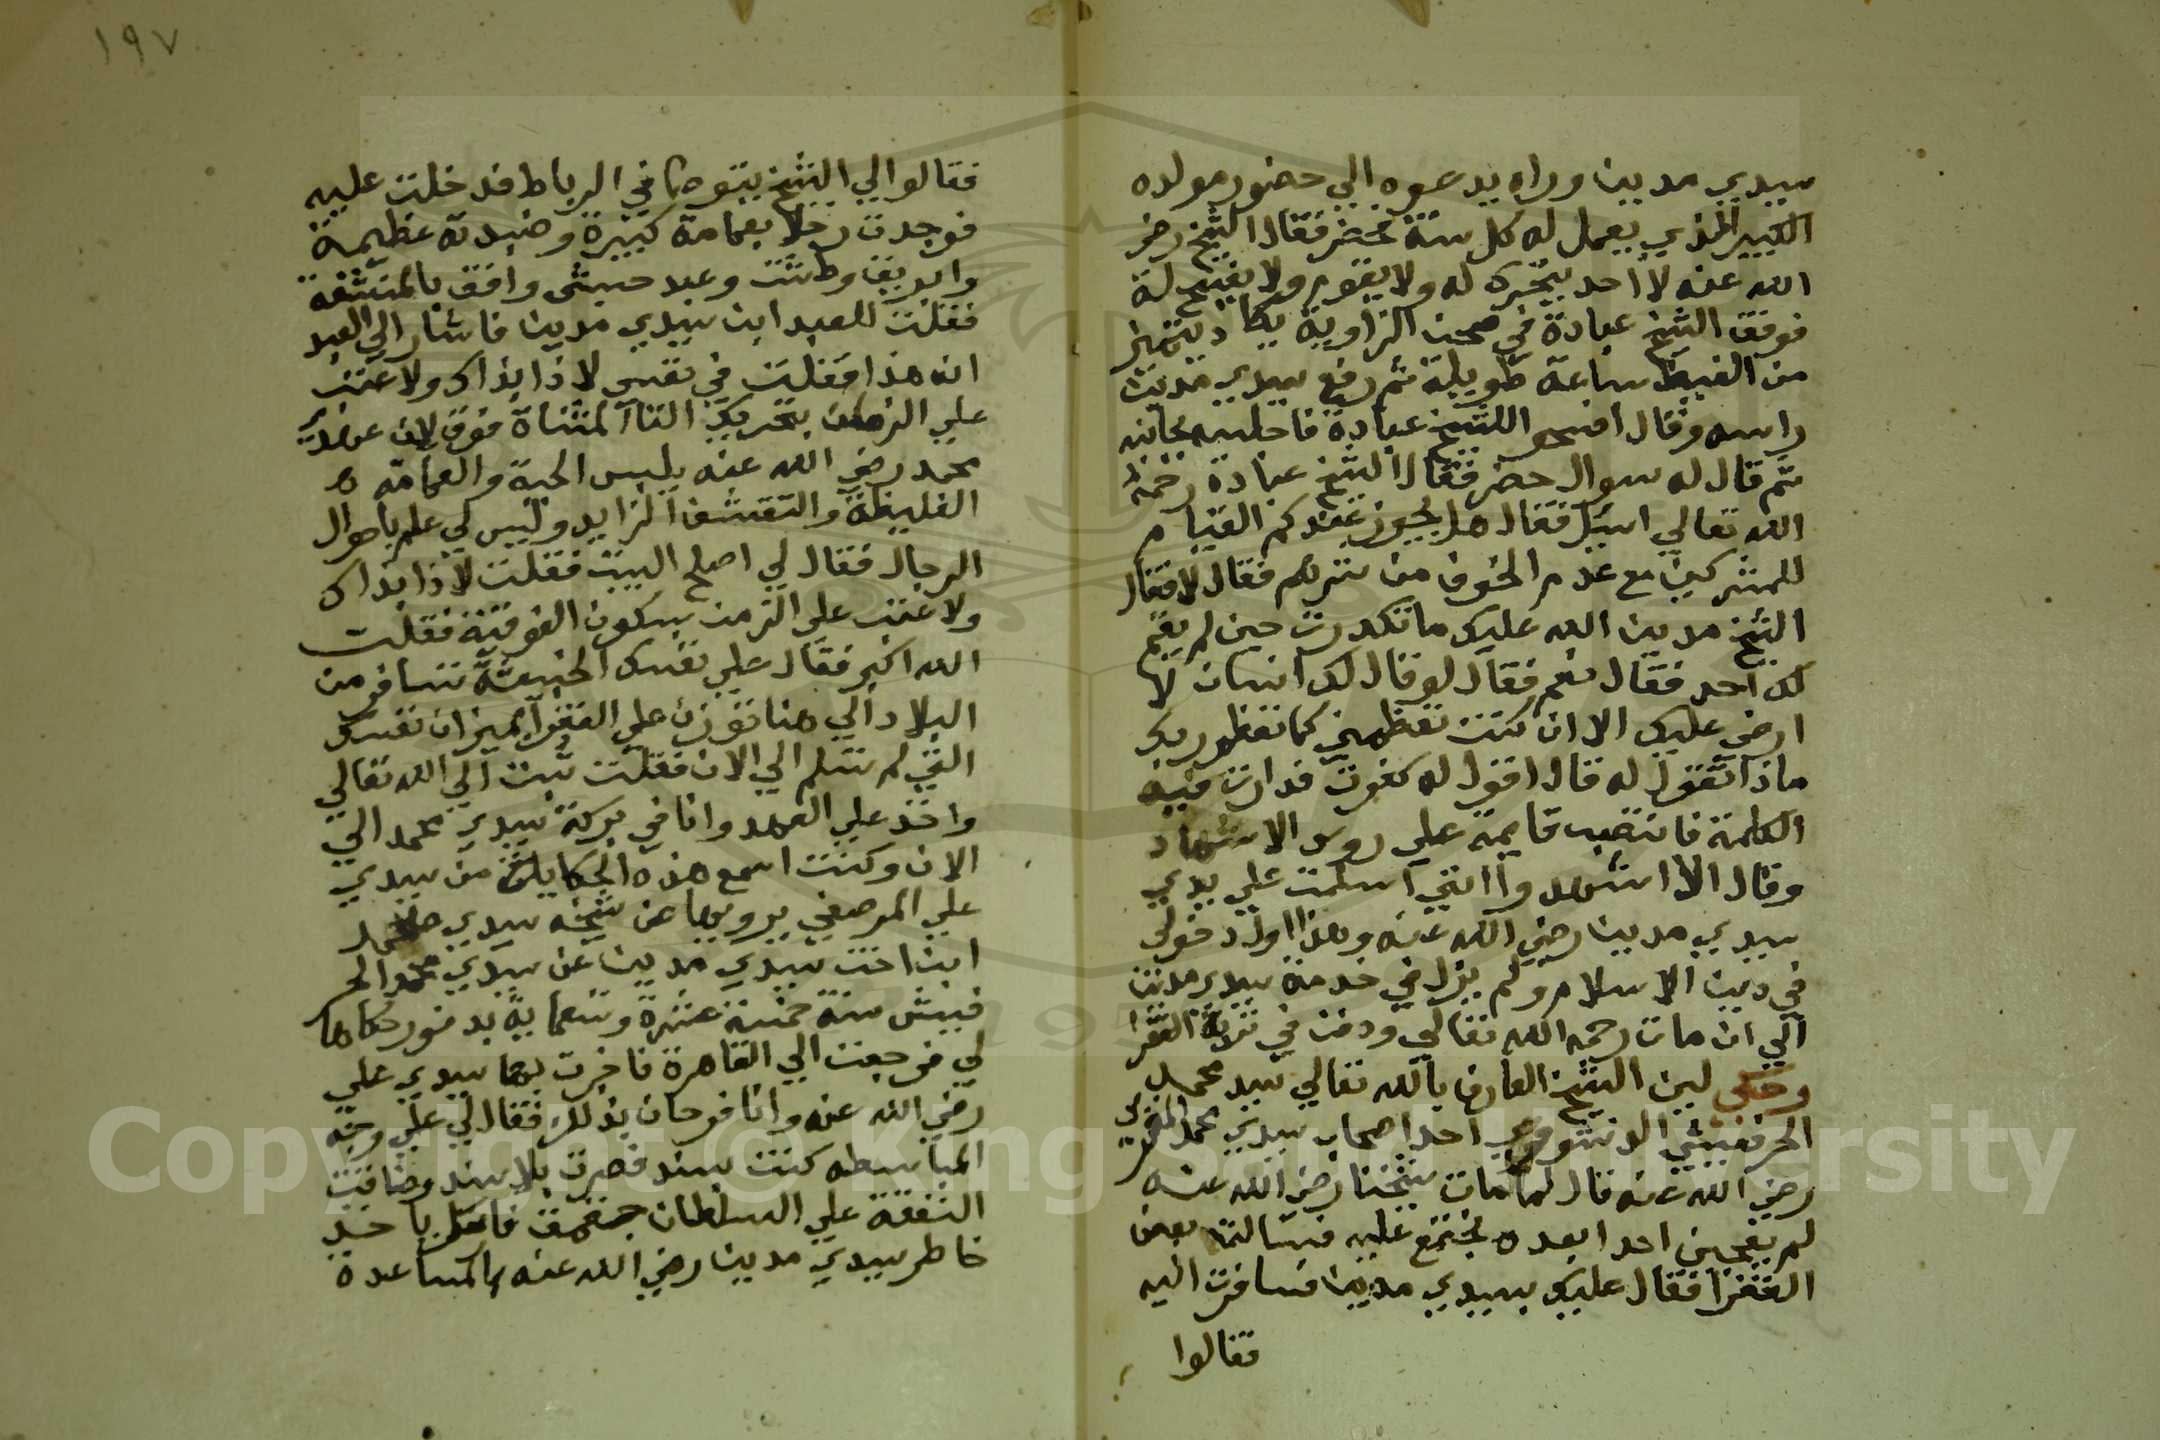 سيدي مدين وراه يدعوه الي حضور مولده
الكبير الذي يعمل له كل سنة فحضر فقال الشيخ رضي
الله عنه لا احد يتحرك له ولا يقوم ولا يفسح له
فوقف الشيخ عبادة في صحن الزاوية يكاد يتميز
من الغيظ ساعة طويلة ثم رفع سيدي مدين
راسه وقال افسحو اللشيخ عبادة فاجلسه بجانبه
ثم قال له سوال حضر فقال الشيخ عبادة رحمه
الله تعالي اسيل فقال هل يجوز عندكم القيام
للمشركين مع عدم الخوف من شرهم فقال لا فقال
الشيخ مدين الله عليك ما تكدرت حين لم يقم
لك احد فقال نعم فقال لو قال لك انسان لا
ارضي عليك الا ان كنت تعظمني كما تعظم ربك
ماذا تقول له قال اقول له كفرت فدارت فيه
الكلمة فانتصب قايمة علي روس الاشهاد
وقال الا اشهدوا انني اسلمت علي يدي
سيدي مدين رضي الله عنه وهذا اول دخولي
في دين الاسلام ولم يزل في خدمة سيدي مدين
الي ان مات رحمه الله تعالي ودفن في تربة الفقرا
وحكي لين الشيخ العارف بالله تعالي سيد محمد
الحرفيشي الدنشوهي احد اصحاب سيدي محمد الغمري
رضي الله عنه قال لما مات شيخنا رضي الله عنه
لم يعجبني احدا بعده نجتمع عليه فسالت بعض
الفقرا فقال عليك بسيدي مدين فسافرت اليه
فقالوا
١٩٧
فقالوا لي الشيخ يتوضا في الرباط فدخلت عليه
فوجدت رجلا بعمامة كبيرة وجبة عظيمة
وابريق وطشت وعبد حبشي واقف بالمنشفة
فقلت للعبد اين سيدي مدين فاشار الي العبد
انه هذا فقلت في نفسي لا ذا بذاك ولا عتب
علي الزمان بتحريك التا المثناة فوق لان عهدي
محمد رضي الله عنه يلبس الجبة والعمامه
الغليظة والتقشف الزايد وليس لي علم باحوال
الرجال فقال لي اصلح البيت فقلت لا ذا بذاك
ولا عتب علي الزمن بسكون الفوقية فقلت
الله اكبر فقال علي نفسك الخبيثة تسافر من
البلاد الي هنا تزن علي الفقرا بميزان نفسك
التي لم تسلم الي الان فقلت تبت الي الله تعالي
واخذ علي العهد وانا في بركة سيدي محمد الي
الان وكنت اسمع هذه الحكاية من سيدي
علي المرصفي يرويها عن شيخه سيدي محمد
ابن اخت سيدي مدين عن سيدي محمد الحر
فيشي سنة خمسة عشرة وتسعماية بدمنور حكاها
لي فرجعت الي القاهرة فاخبرت بها سيدي علي
رضي الله عنه وانا فرحان بذلك فقال لي علي وجه
المباسطه كنت بسند فصرت بلا سند وضاقت
النفقة علي السلطان جقمق فارسل ياخذ
خاطر سيدي مدين رضي الله عنه بالمساعدة